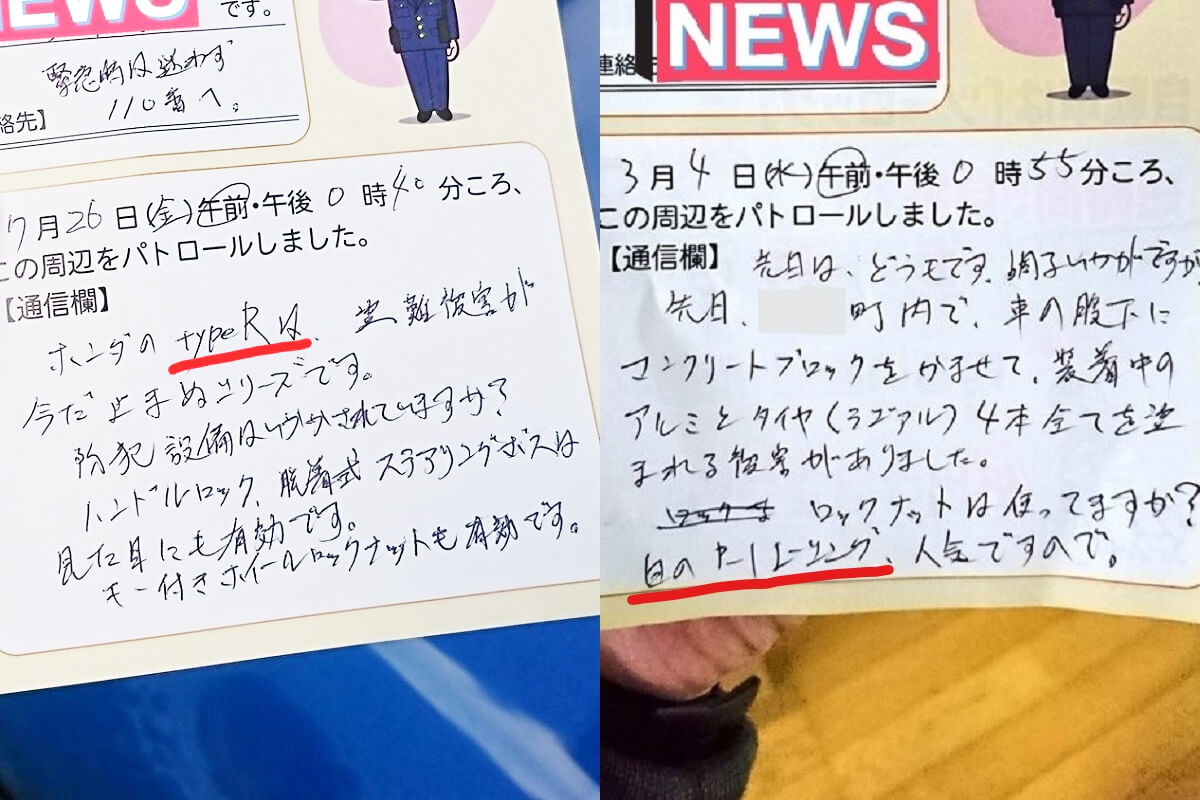 NEWS
です。
緊急時は迷わず
110番へ。
絡先】
7月26日(金)午前・午後0時40分ころ、
この周辺をパトロールしました。
【通信欄】
ホンダの typeRは、盗難被害が
今だ止まぬシリーズです。
防犯設備はいかがされていますか?
ハンドルロック、脱着式ステアリングボスは
見た目にも有効です。
キー付きホイールロックナットも有効です。
NEWS
連絡
3月4日(水)午前・午後0時55分ころ、
この周辺をパトロールしました。
【通信欄】
先日は、どうもです。調子いかがですか
先日、町内で、車の股下に
コンクリートブロックをかませて、装着中の
アルミとタイヤ(ラジアル)4本全てを盗
まれる被害がありました。
ロックナットは使ってますか?
白の 人気ですので。